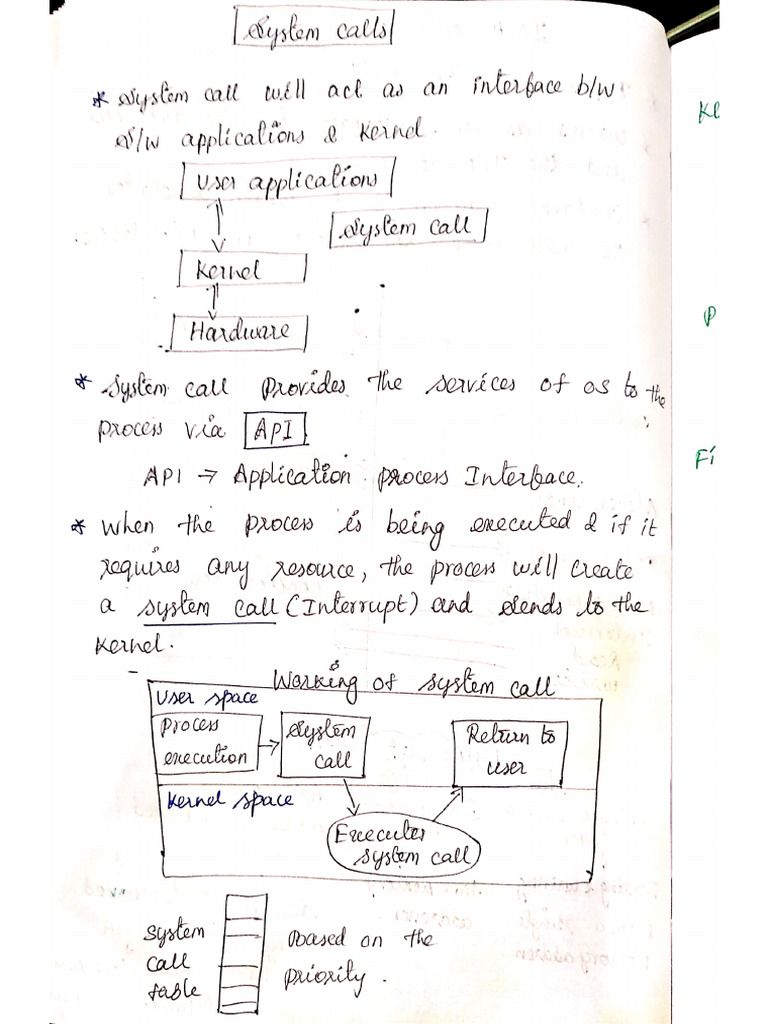 System calls
* System call will act as an interface b/w
S/w applications & Kernel.
User applications
System call
Kernel
Hardware
* System call provides the services of os to the
process via API
API → Application process Interface.
* When the process is being executed & if it
requires any resource, the process will create
a system call (Interrupt) and sends to the
kernel.
Working of system call
User space
Process
execution
System
call
Return to
user
Kernel space
Executer
system call
System
call
table
Based on the
priority.
Ke
P
Fi